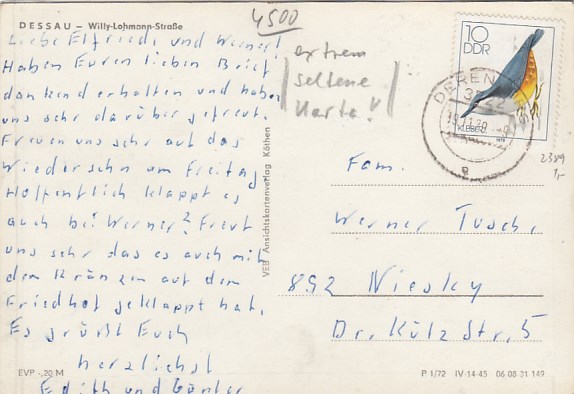 DESSAU — Willy-Lohmann-Straße
4500
Liebe Elfriede und Werner!
Haben Euren lieben Brief
dankend erhalten und haben
uns sehr darüber gefreut.
Freuen uns sehr auf das
Wiedersehn am Freitag
Hoffentlich klappt es
auch bei Werner? Freut
uns sehr das es auch mit
den Kränzen auf dem
Friedhof geklappt hat.
Es grüßt Euch
herzlichst
Edith und Günter
extrem
seltene
Karte!
10
DDR
KLEIBER
2389
1,-
Fam.
Werner Tusche
892 Niesky
Dr. Külz Str. 5
VEB Ansichtskartenverlag Köthen
EVP -,20 M
P 1/72 IV-14-45 06 08 31 149